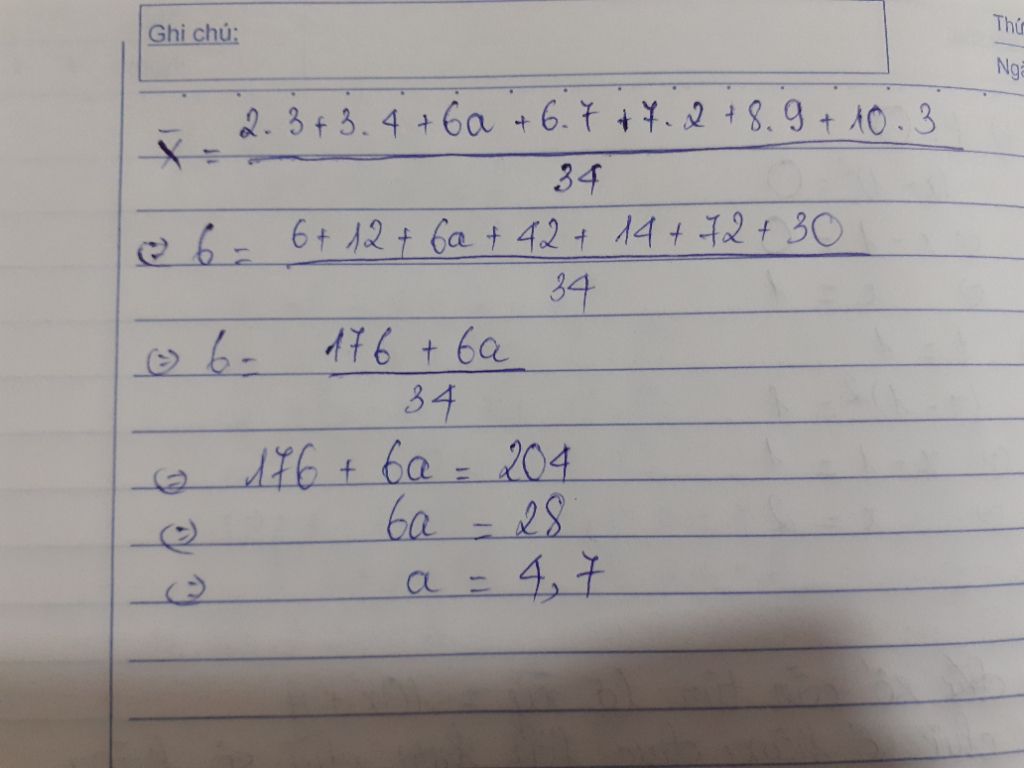 Ghi chú:
Thứ
Ngà
X̄ = (2.3+3.4+6a+6.7+7.2+8.9+10.3)/34
⇔ 6 = (6+12+6a+42+14+72+30)/34
⇔ 6 = (176+6a)/34
⇔ 176+6a=204
⇔ 6a=28
⇔ a=4,7